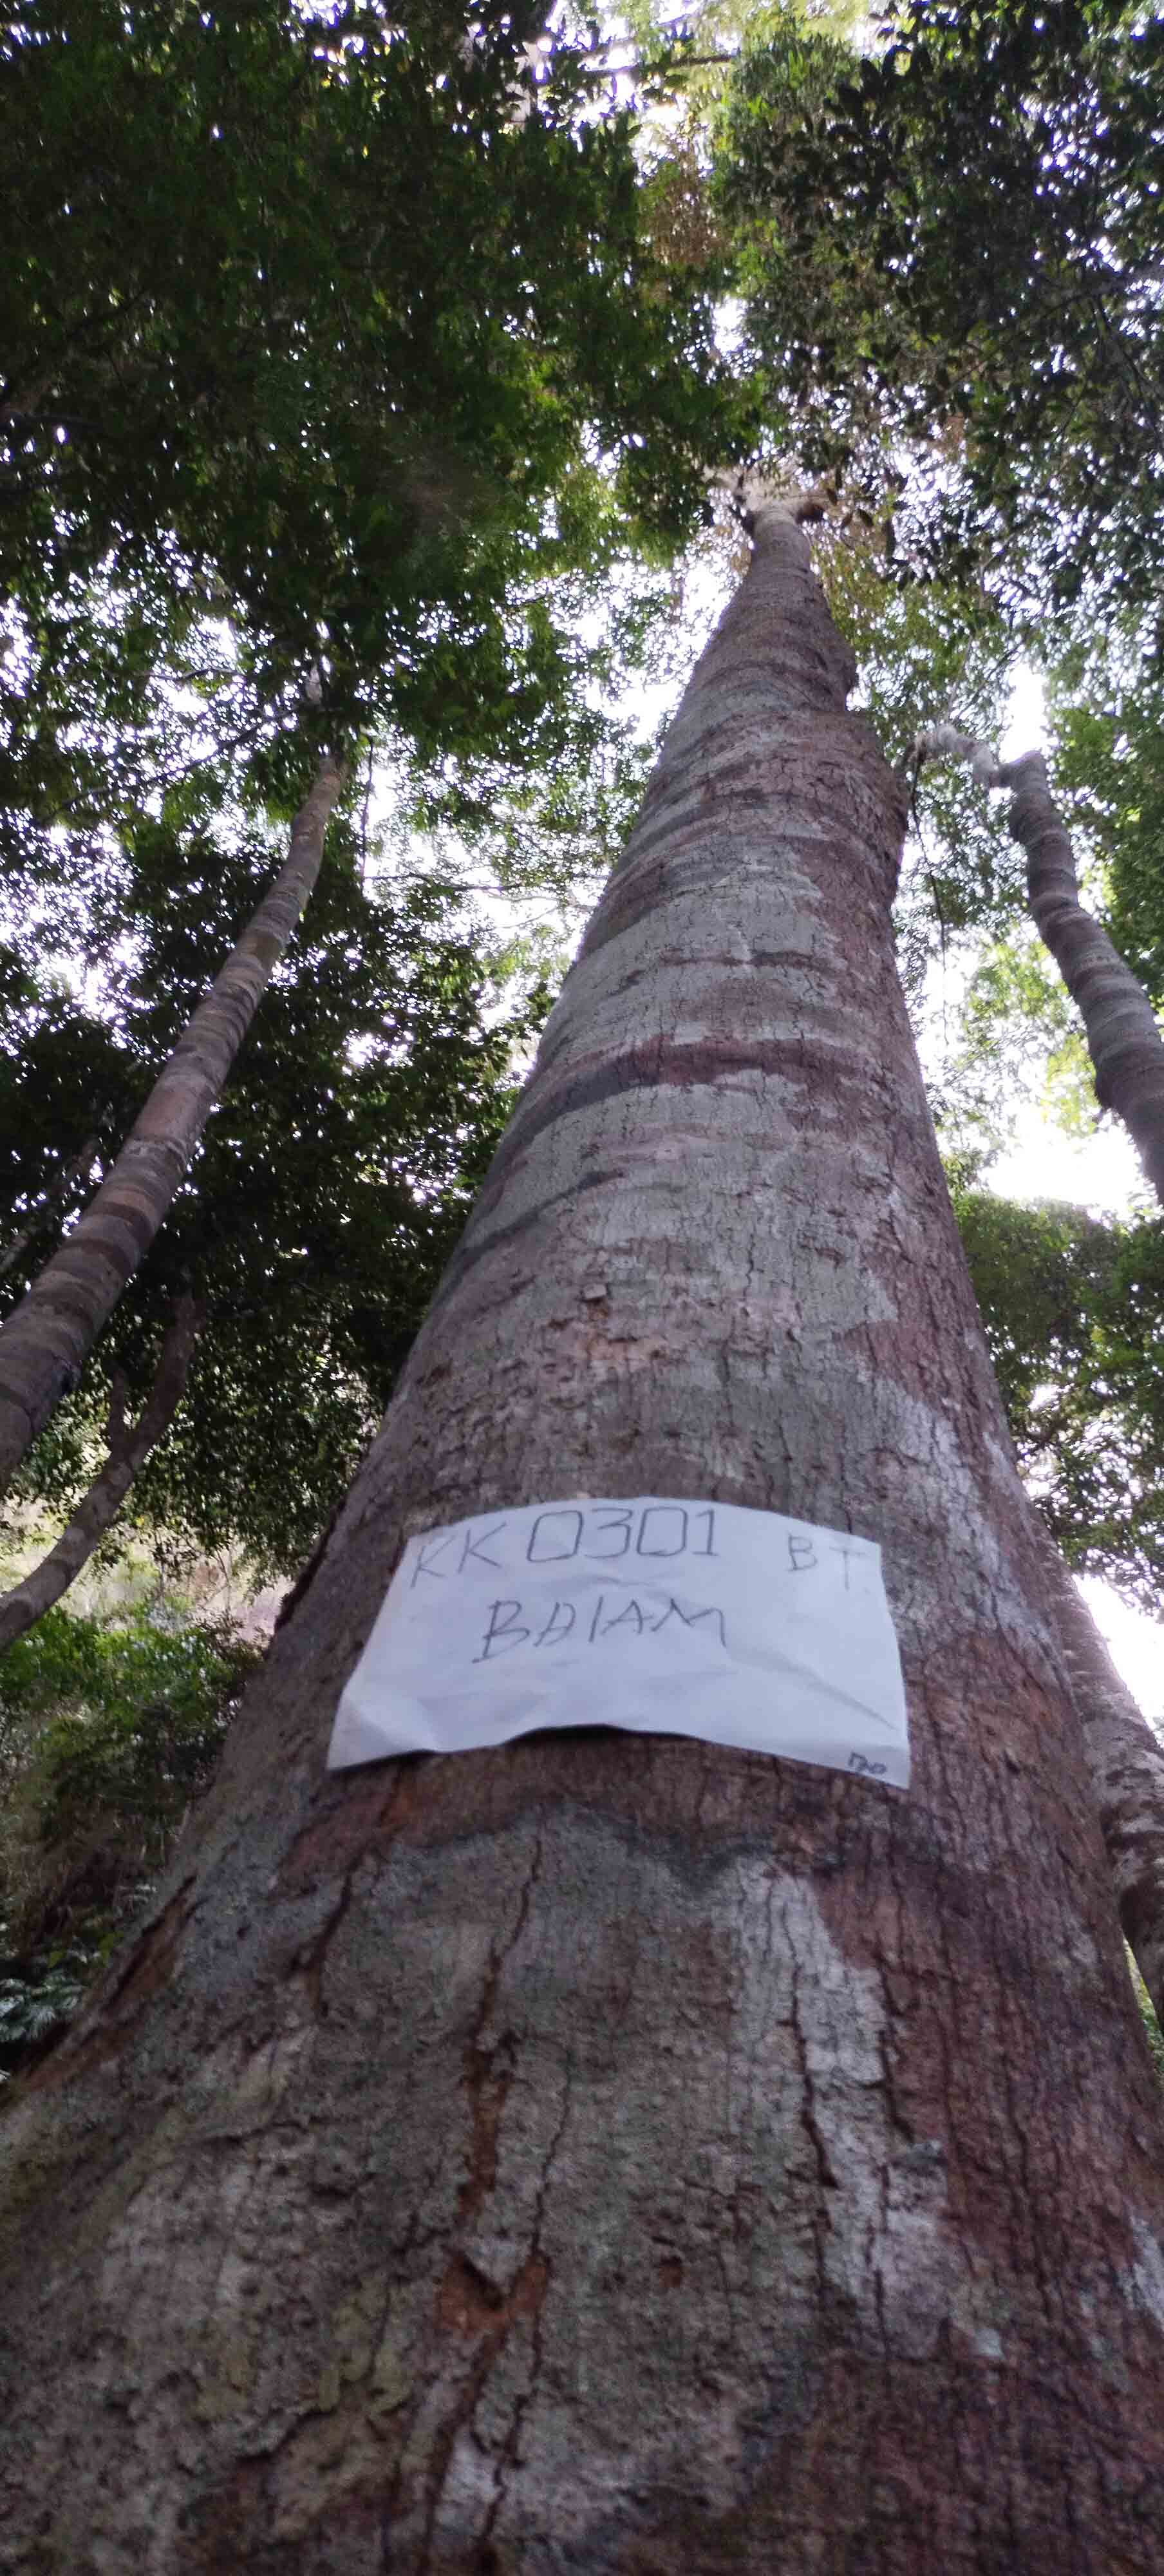 KK 0301 BT
BAIAM